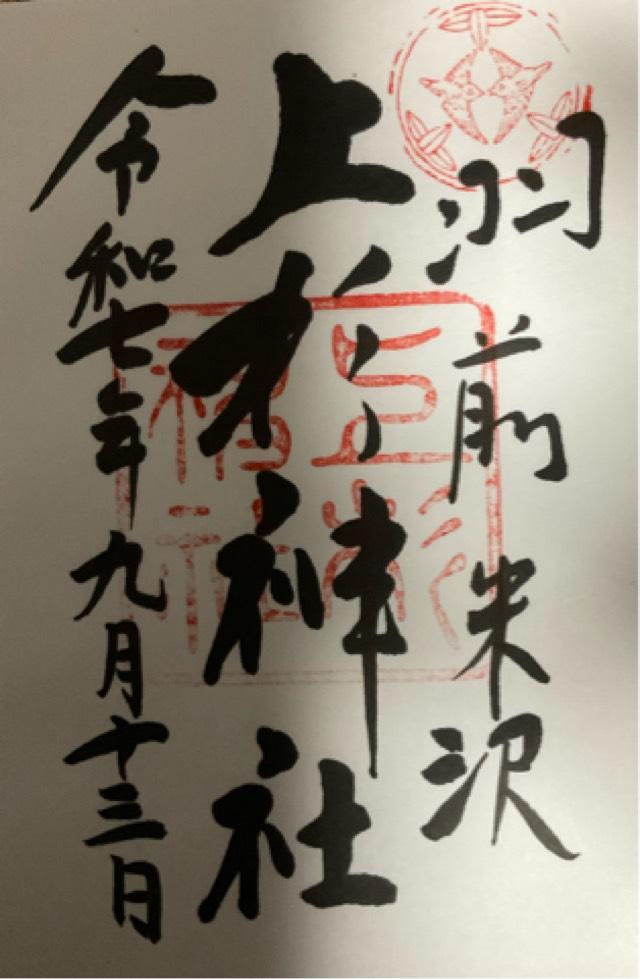 羽前米沢
上杉神社
令和七年九月十三日
上杉
神社